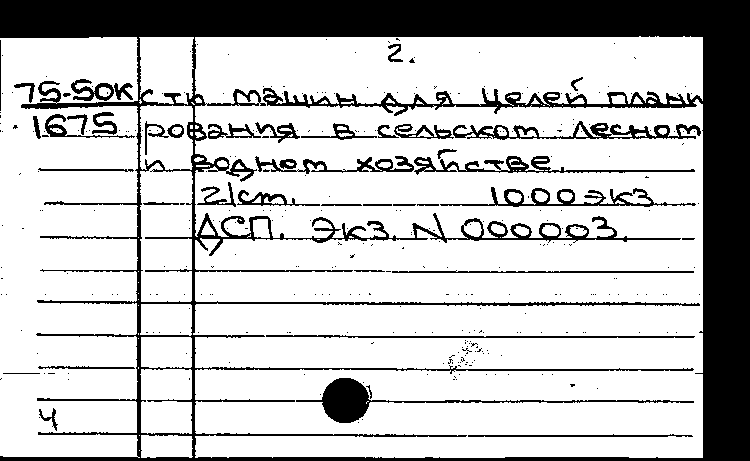 2.
75-50к сти машин для целей плани
1675 рования в сельском лесном
и водном хозяйстве.
21ст. 1000 экз
ДСП. Экз. N 000003.
4